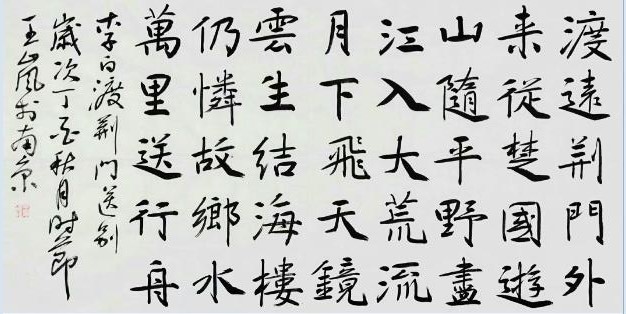 渡遠荆門外
来從楚國遊
山隨平野盡
江入大荒流
月下飛天鏡
雲生結海樓
仍憐故鄉水
萬里送行舟
李白渡荆门送别
歲次丁酉秋月时節
王嵐於南京